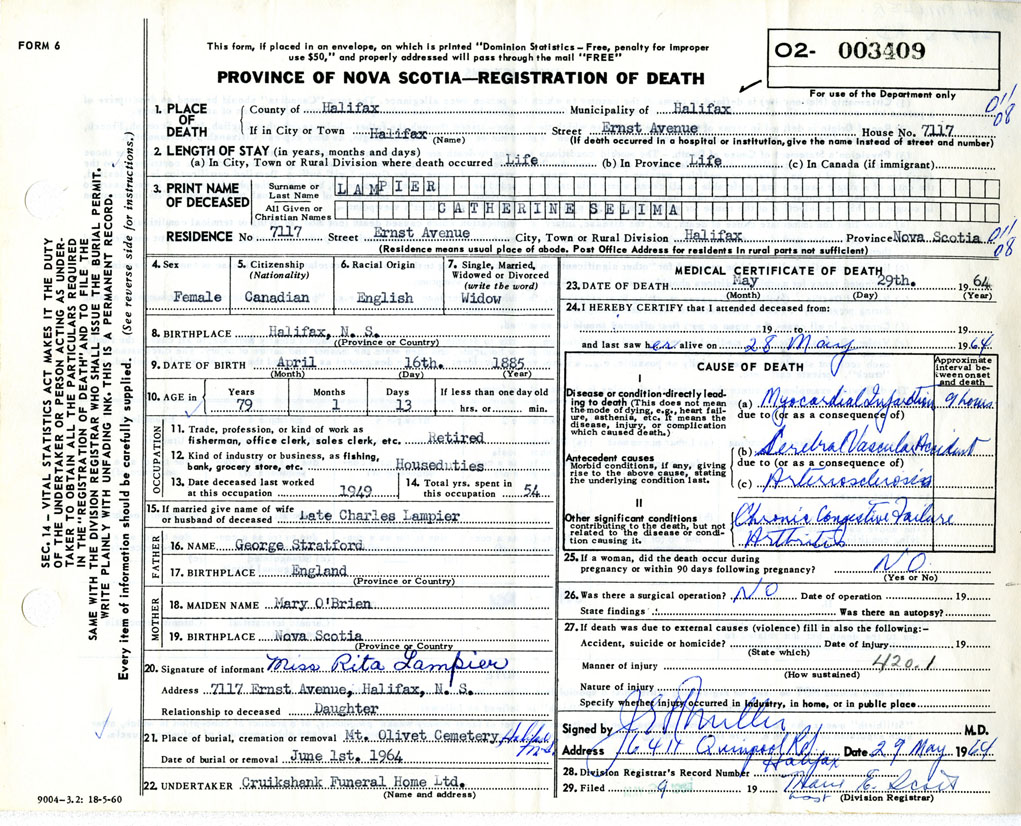 FORM 6
This form, if placed in an envelope, on which is printed "Dominion Statistics – Free, penalty for improper
use $50," and properly addressed will pass through the mail "FREE"
PROVINCE OF NOVA SCOTIA—REGISTRATION OF DEATH
O2- 003409
For use of the Department only
011
08
1. PLACE OF DEATH
County of Halifax Municipality of Halifax
If in City or Town Halifax Street Ernst Avenue House No. 7117
(Name) (If death occurred in a hospital or institution, give the name instead of street and number)
2. LENGTH OF STAY (in years, months and days)
(a) In City, Town or Rural Division where death occurred Life (b) In Province Life (c) In Canada (if immigrant)
3. PRINT NAME OF DECEASED
Surname or Last Name LAMPIER
All Given or Christian Names CATHERINE SELIMA
RESIDENCE No 7117 Street Ernst Avenue City, Town or Rural Division Halifax Province Nova Scotia
011
08
(Residence means usual place of abode. Post Office Address for residents in rural parts not sufficient)
4. Sex
Female
5. Citizenship
(Nationality)
Canadian
6. Racial Origin
English
7. Single, Married,
Widowed or Divorced
(write the word)
Widow
8. BIRTHPLACE Halifax, N. S.
(Province or Country)
9. DATE OF BIRTH April 16th. 1885
(Month) (Day) (Year)
10. AGE in
Years Months Days If less than one day old
79 1 13 hrs. or min.
OCCUPATION
11. Trade, profession, or kind of work as
fisherman, office clerk, sales clerk, etc. Retired
12. Kind of industry or business, as fishing,
bank, grocery store, etc. Houseduties
13. Date deceased last worked
at this occupation 1949
14. Total yrs. spent in
this occupation 54
15. If married give name of wife
or husband of deceased Late Charles Lampier
FATHER
16. NAME George Stratford
17. BIRTHPLACE England
(Province or Country)
MOTHER
18. MAIDEN NAME Mary O'Brien
19. BIRTHPLACE Nova Scotia
(Province or Country)
20. Signature of informant Miss Rita Lampier
Address 7117 Ernst Avenue, Halifax, N. S.
Relationship to deceased Daughter
21. Place of burial, cremation or removal Mt. Olivet Cemetery, Halifax
N.S.
Date of burial or removal June 1st. 1964
22. UNDERTAKER Cruikshank Funeral Home Ltd.
(Name and address)
9004–3.2: 18-5-60
MEDICAL CERTIFICATE OF DEATH
23. DATE OF DEATH May 29th. 1964
(Month) (Day) (Year)
24. I HEREBY CERTIFY that I attended deceased from:
19 to 19
and last saw her alive on 28 May 1964
CAUSE OF DEATH
Approximate
interval between onset
and death
I
Disease or condition directly leading to death (This does not mean
the mode of dying, e.g., heart failure, asthenia, etc. It means the
disease, injury, or complication
which caused death.)
(a) Myocardial Infarction 9 hours
due to (or as a consequence of)
(b) Cerebral Vascular Accident
due to (or as a consequence of)
(c) Arteriosclerosis
Antecedent causes
Morbid conditions, if any, giving
rise to the above cause, stating
the underlying condition last.
II
Other significant conditions
contributing to the death, but not
related to the disease or condition causing it.
Chronic Congestive Failure
Arthritis
25. If a woman, did the death occur during
pregnancy or within 90 days following pregnancy? NO
(Yes or No)
26. Was there a surgical operation? NO Date of operation 19
State findings Was there an autopsy?
27. If death was due to external causes (violence) fill in also the following:–
Accident, suicide or homicide? Date of injury 19
(State which)
Manner of injury 420.1
(How sustained)
Nature of injury
Specify whether injury occurred in industry, in home, or in public place
Signed by M.D.
Address 6411 Quinpool Rd Date 29 May 1964
Halifax
28. Division Registrar's Record Number
29. Filed 9 19 E. Scott
(Division Registrar)
SEC. 14 – VITAL STATISTICS ACT MAKES IT THE DUTY
OF THE UNDERTAKER OR PERSON ACTING AS UNDERTAKER TO OBTAIN ALL THE PARTICULARS REQUIRED
IN THE "REGISTRATION OF DEATH" AND TO FILE THE
SAME WITH THE DIVISION REGISTRAR WHO SHALL ISSUE THE BURIAL PERMIT.
WRITE PLAINLY WITH UNFADING INK. THIS IS A PERMANENT RECORD.
Every item of information should be carefully supplied. (See reverse side for instructions.)